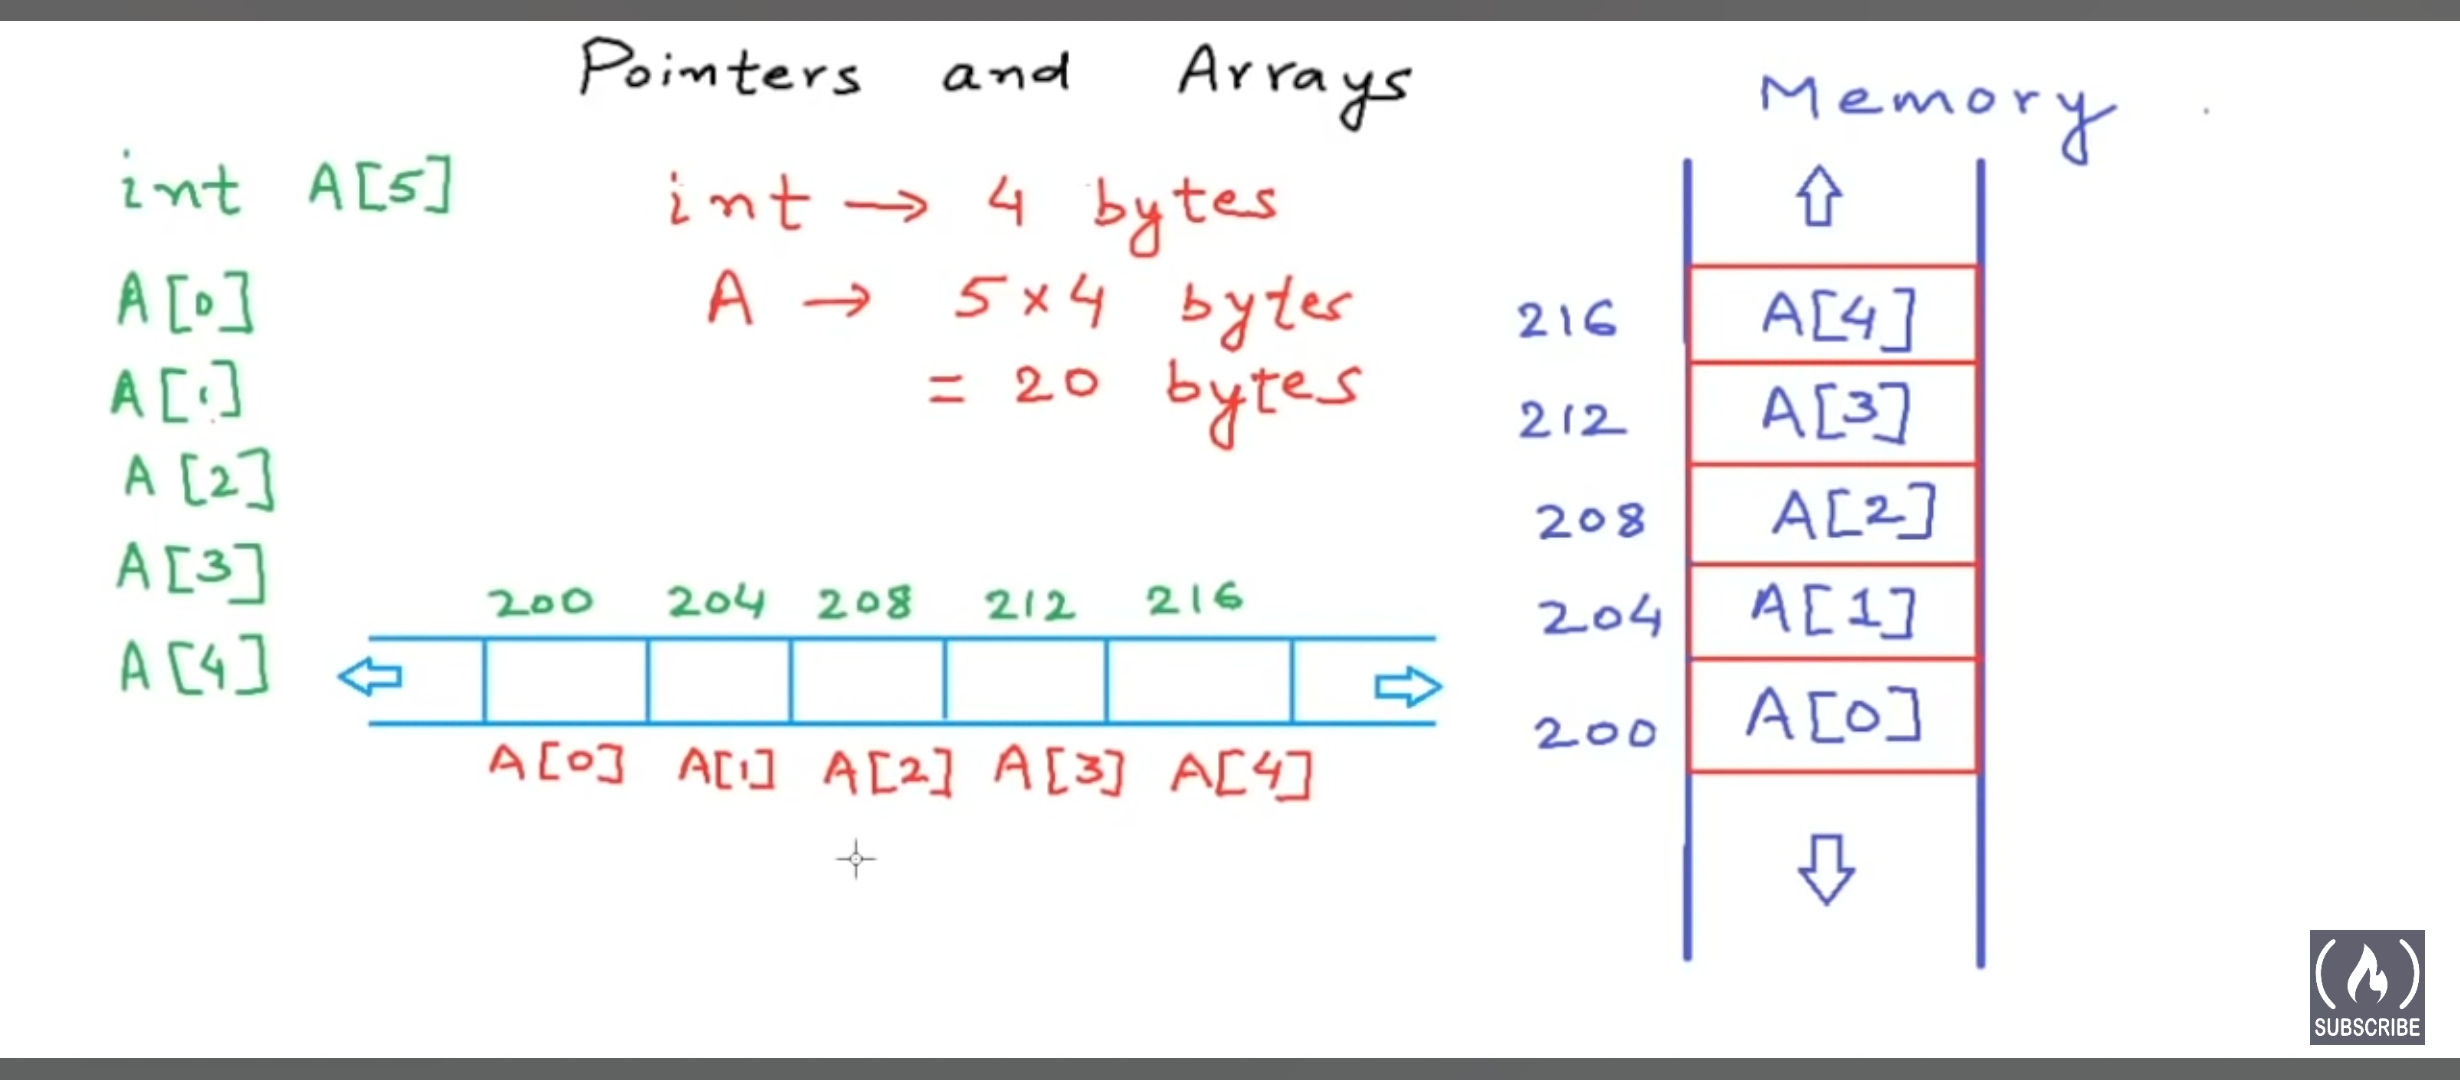 Pointers and Arrays
int A[5]
A[0]
A[1]
A[2]
A[3]
A[4]
int → 4 bytes
A → 5×4 bytes
= 20 bytes
200 204 208 212 216
A[0] A[1] A[2] A[3] A[4]
Memory
216 A[4]
212 A[3]
208 A[2]
204 A[1]
200 A[0]
SUBSCRIBE